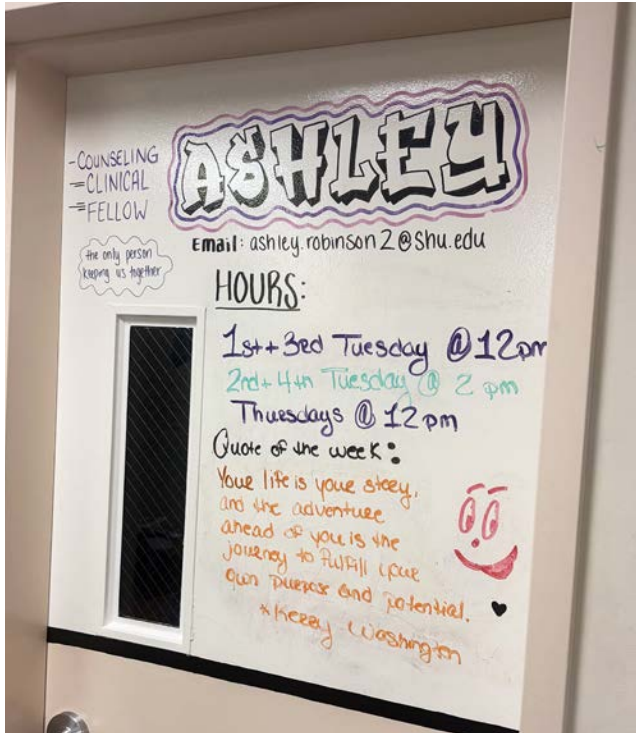 -COUNSELING
=CLINICAL
≡FELLOW
ASHLEY
the only person
keeping us together
Email: ashley.robinson2@shu.edu
HOURS:
1st + 3rd Tuesday @ 12pm
2nd + 4th Tuesday @ 2 pm
Thursdays @ 12 pm
Quote of the week:
Your life is your story,
and the adventure
ahead of you is the
journey to fulfill your
own purpose and potential.
*Kerry Washington